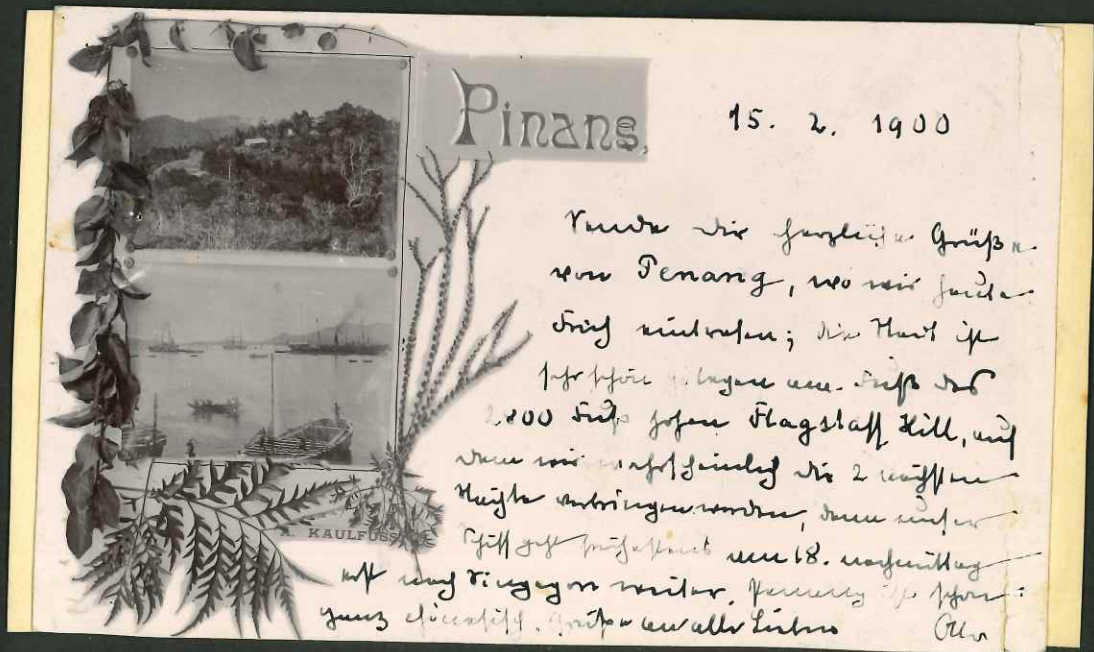 Pinang.
15. 2. 1900
Sende dir herzliche Grüße
von Penang, wo wir heute
früh eintrafen; die Stadt ist
sehr schön gelegen am Fuße des
2800 Fuß hohen Flagstaff Hill, auf
dem wir wahrscheinlich die 2 nächsten
Nächte verbringen werden, denn unser
Schiff geht frühestens am 18. nachmittag
erst nach Singapore weiter. Penang ist schon
ganz chinesisch. Grüße an alle Lieben
Otto
A. KAULFUSS